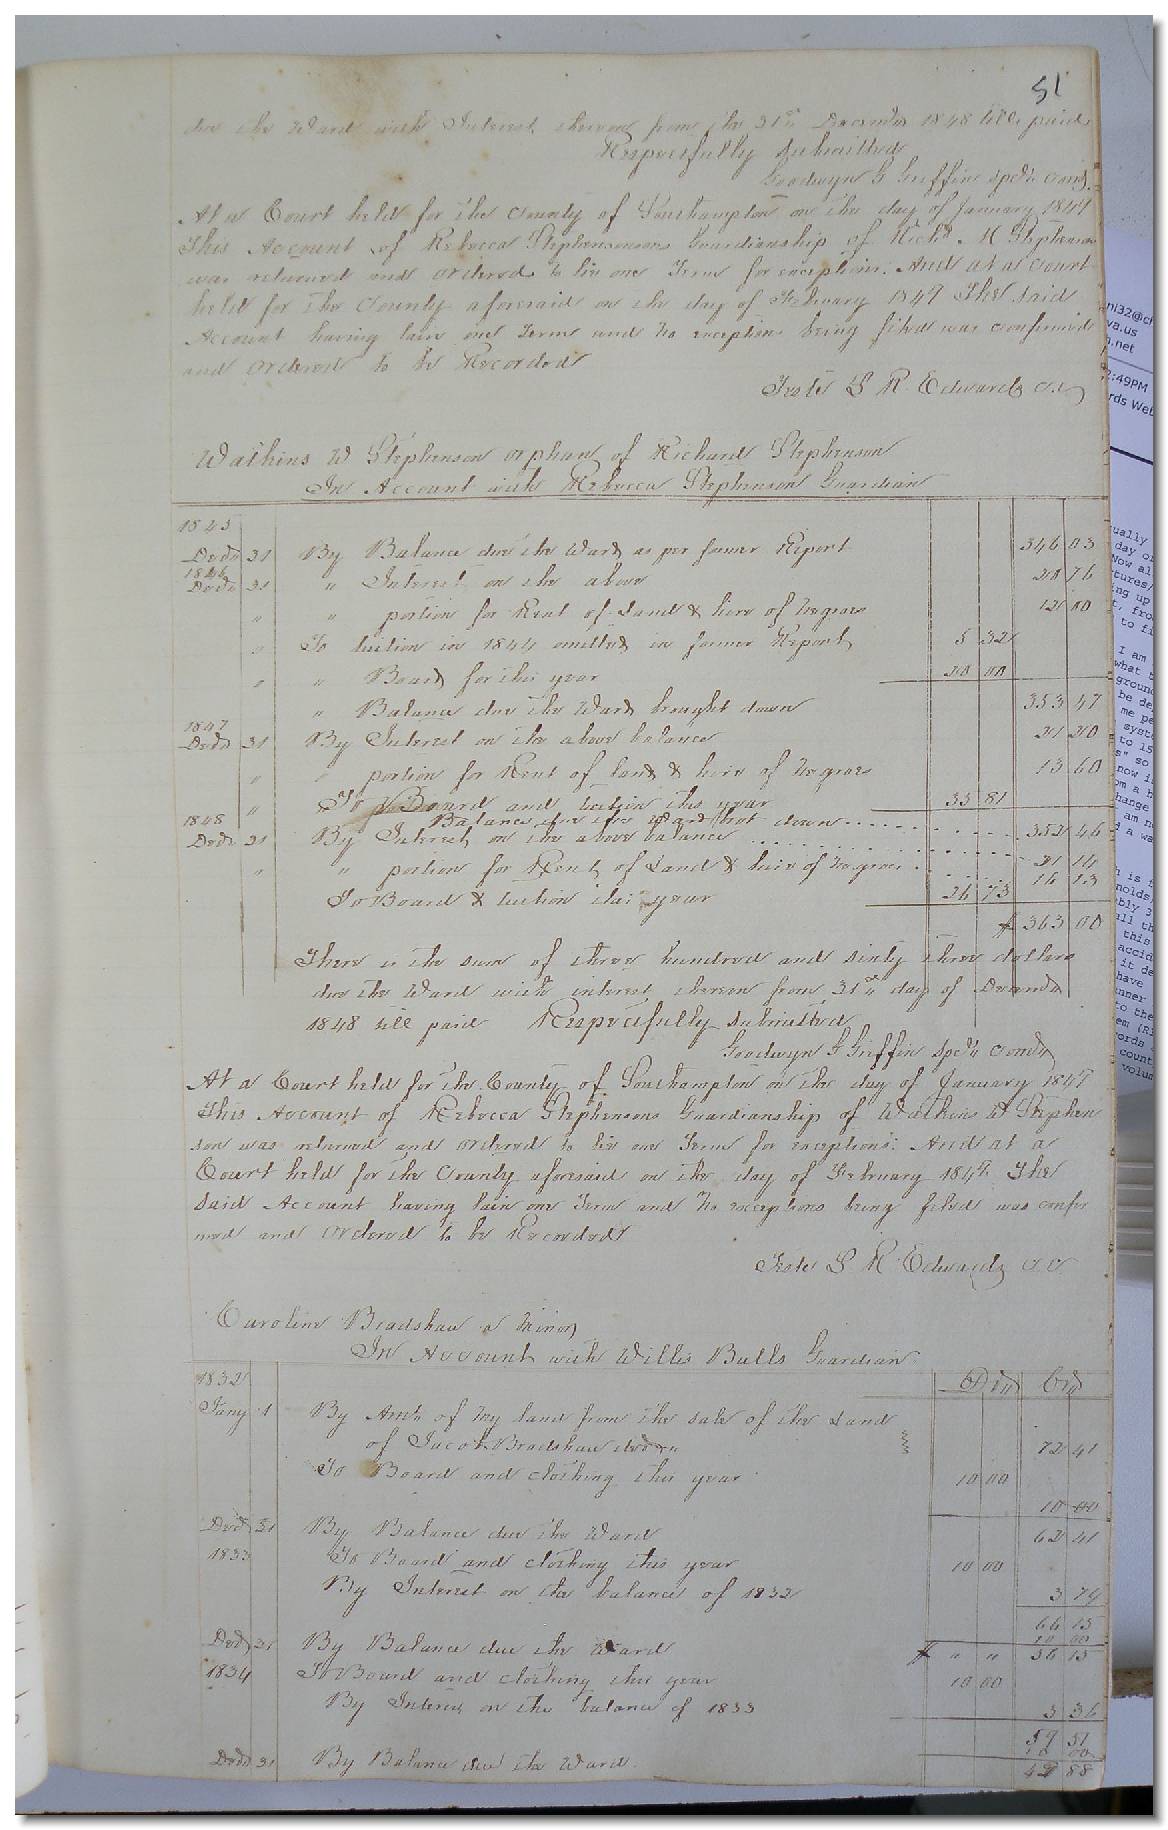 51
due the Ward with Interest thereon from the 31st December 1848 till paid
Respectfully Submitted
Goodwyn G Griffin Spel. Comr.
At a Court held for the County of Southampton on the day of January 1849
This Account of Rebecca Stephensons Guardianship of Richd. M Stephenson
was returned and ordered to lie one Term for exceptions. And at a Court
held for the County aforesaid on the day of February 1849 The Said
Account having lain one Term and no exceptions being filed was confirmed
and Ordered to be Recorded
Teste L R Edwards C.C
Watkins W Stephenson orphan of Richard Stephenson
In Account with Rebecca Stephenson Guardian
1845
Decr 31 By Balance due the Ward as per former Report 346 03
1846
Decr 31 " Interest on the above 20 76
" " portion for Rent of Land & hire of Negroes 12 00
" To tuition in 1844 omitted in former Report 5 32
" " Board for this year 20 00
" Balance due the Ward brought down 353 47
1847
Decr 31 By Interest on the above balance 21 20
" " portion for Rent of land & hire of Negroes 13 60
" To Board and tuition this year 35 81
1848 Balance due the Ward brot down 352 46
Decr 31 By Interest on the above balance 21 14
" " portion for Rent of Land & hire of Negroes 16 13
To Board & tuition this year 26 73
$363 00
There is the sum of three hundred and sixty three dollars
due the Ward with interest thereon from 31st day of Decemr
1848 till paid Respectfully Submitted
Goodwyn G Griffin Spel. Comr
At a Court held for the County of Southampton on the day of January 1849
This Account of Rebecca Stephensons Guardianship of Watkins W Stephen
son was returned and ordered to lie one Term for exceptions. And at a
Court held for the County aforesaid on the day of February 1849 The
Said Account having lain one Term and no exceptions being filed was confir
med and Ordered to be Recorded
Teste L R Edwards C C
Caroline Bradshaw a Minor
In Account with Willis Bulls Guardian
1832 Dr Cr
Jany 1 By Amt. of my land from the sale of the Land
of Jacob Bradshaw decd 72 41
To Board and clothing this year 10 00
10 00
Decr 31 By Balance due the Ward 62 41
1833 To Board and clothing this year 10 00
By Interest on the balance of 1832 3 74
66 15
10 00
Decr 31 By Balance due the Ward $ " " 56 15
1834 To Board and clothing this year 10 00
By Interest on the balance of 1833 3 36
59 51
10 00
Decr 31 By Balance due the Ward 49 88